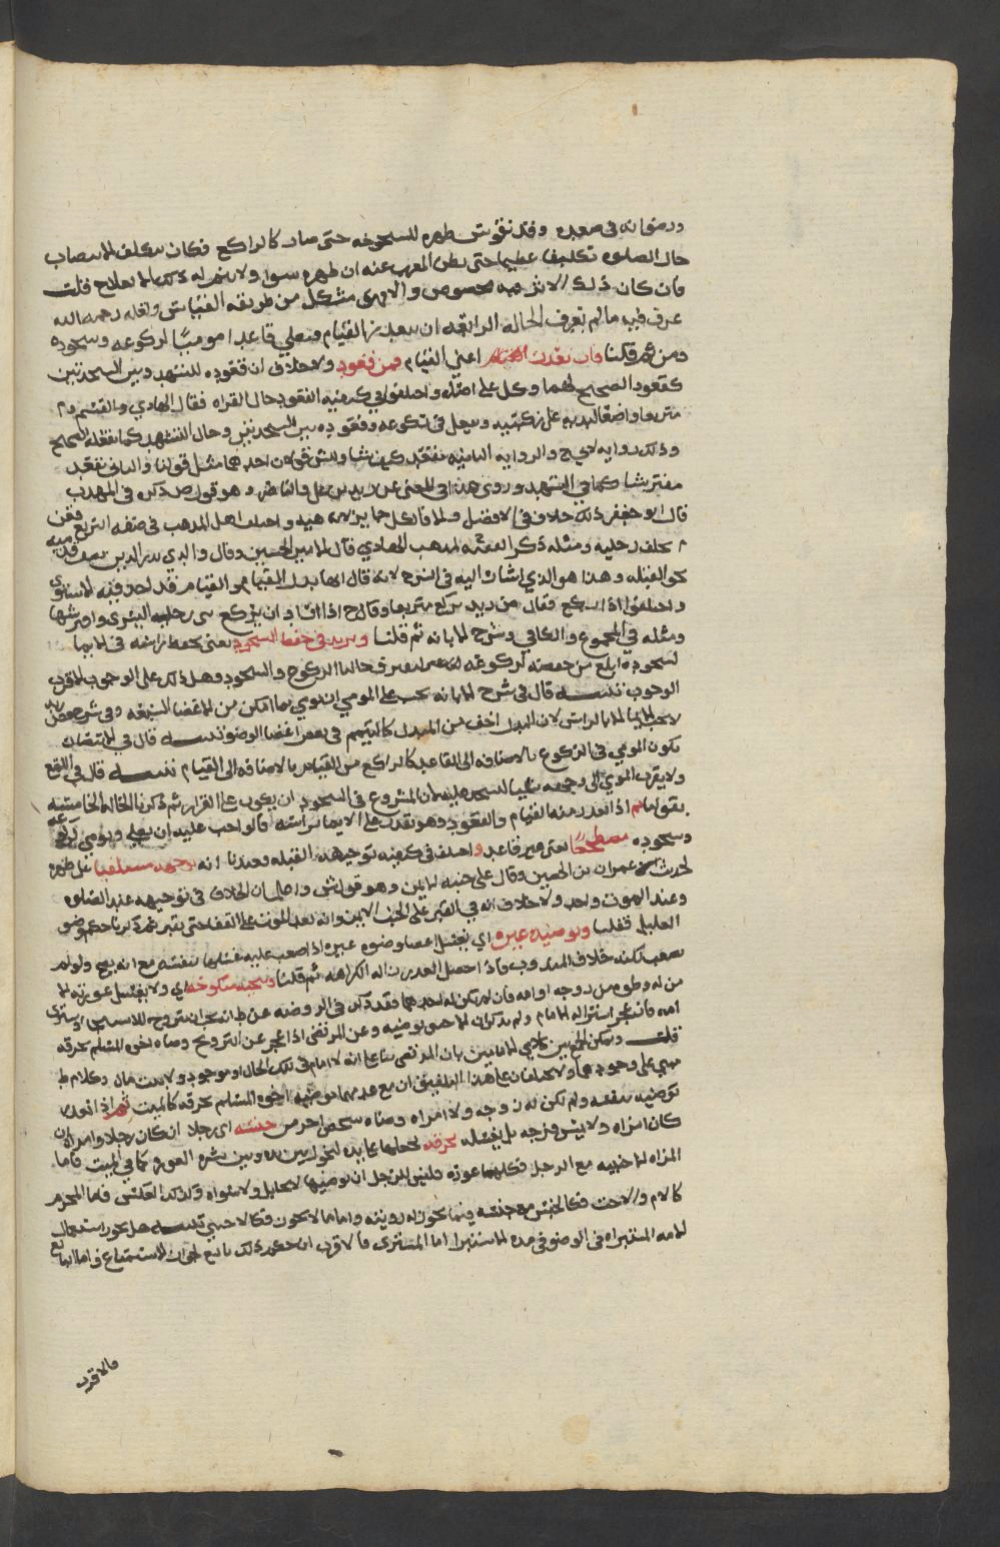 ورضوانه في صعده وقد تقوس ظهره للشيخوخه حتى صار كالراكع فكان يتكلف الانتصاب
حال الصلوه تكليفا عظيما حتى يظن المغرب عنه ان ظهره سوا ولا يتم له ذلك الا بعلاج قلت
فان كان ذلك لاثر فيه مخصوص والا فهو مشكل من طريقه القياس ولعله رحمه الله
عرف فيه ما لم نعرف الحاله الرابعه ان يتعذر القيام فيصلي قاعدا موميا لركوعه وسجوده
ومن ثم قلنا فان تعذرت اعني القيام فمن قعود ولا خلاف ان قعوده للتشهد وبين السجدتين
كقعود الصحيح لهما وكل على اصله واختلفوا في كيفيه القعود حال القراه فقال الهادي والقسم وم
متربعا واضعا ليديه على ركبتيه ويجعل في ركوعه وقعوده بين السجدتين وحال التشهد كما يفعله الصحيح
وذلك روايه لاصح والروايه الثانيه يقعد كيف شا وللش قولان احدهما مثل قولنا والثاني يقعد
مفترشا كما في التشهد وروى هذا في المغني عن زيد بن علي والناصر وهو قول ذكره في المهذب
قال ابو جعفر ذلك خلاف في الافضل والا فالكل جايز واختلف اهل المذهب في صفه التربع فعن
م يخلف رجليه ومثله ذكر الفقيه لمذهب الهادي قال الامير الحسين وقال والدي بدر الدين يصف قدميه
نحو القبله وهذا هو الذي اشار اليه في الشرح لانه قال انها بدل القيام والقيام قد اخذ فيه الاستوى
واختلفوا اذا ركع فقال من زيد يركع متربعا وقال ح اذا اراد ان يركع ثنى رجليه اليسرى وافترشها
ومثله في المجموع والكافي وشرح الابانه ثم قلنا ويزيد في خفض السجود يعني يخفض راسه في الايما
لسجوده ابلغ من خفضه لركوعه ليفترق حالتا الركوع والسجود وهل ذلك على الوجوب الاقرب
الوجوب تنبيه قال في شرح الابانه يجب على المومي ان يومي بما امكن من الاعضا السبعه وفي شرح
لا يجب الايما الا بالراس لان البدل اخف من المبدل كالتيمم في بعض اعضا الوضو تنبيه قال في الانتصار
يكون المومي في الركوع بالاضافه الى القاعد كالراكع من القيام بالاضافه الى القيام تنبيه قال في اللمع
ولا يقرب المومي الى وجهه شيا ليسجد عليه لان المشروع في السجود ان يكون على القرار ثم ذكرنا الحاله الخامسه
بقولنا ثم اذا تعذر منه القيام والقعود وهو يقدر على الايما براسه فالواجب عليه ان يصلي ويومي لركوعه
وسجوده مضطجعا يعني غير قاعد واختلف في كيفيه توجيهه القبله وعندنا انه يوجهه مستلقيا على ظهره
لحديث عمران بن الحصين وقال على جنبه الايمن وهو قول ش واعلم ان الخلاف في توجيهه عند الصلوه
وعند الموت واحد ولا خلاف انه في القبر على الجنب الايمن وانه بعد الموت على القفا حتى يقبر ثم ذكرنا حكم وضو
العليل فقلنا ويوضيه غيره اي يغسل اعضا وضوه غيره اذا صعب عليه غسلها بنفسه مع انه يصح ولو لم
يصعب لكنه خلاف المندوب فاذا حصل العذر زالت الكراهه ثم قلنا وينجيه منكوحه اي ولا يغسل عورته الا
من له وطوه من زوجه او امه فان لم تكن له فقد ذكر في الروضه عن ط انه يجب ان يتزوج للاستنجا او يشتري
امه فان عجز اشترا له الامام ولم يذكران الاخ يوضيه وعن المرتضى اذا عجز عن التزويج وضاه اخوه المسلم بخرقه
قلت ويمكن الجمع بين كلامي الامامين بان المرتضى بنا على انه لا امام في تلك الحال او موجود ولا بيت مال وكلام ط
مبني على وجودهما ولا يختلفان على هذا التلفيق ان مع عدمهما يوضيه اخوه المسلم بخرقه كالميت ثم اذا تعذر
توضيه بنفسه ولم تكن له زوجه ولا امراه وضاه شخص اخر من جنسه اي رجلا ان كان رجلا وامراه ان
كان امراه ولا يمس فرجه بل يغسله بخرقه يجعلها على يده لتحول بين يده وبين بشره العوره كما في الميت فاما
المراه الاجنبيه مع الرجل فكلها عوره فليس للرجل ان يوضيها لا بحايل ولا سواه وكذلك العكس فاما المحرم
كالام والاخت فكالجنس مع جنسه فيما يجوز له رويته واما ما لا يجوز فكالاجنبي تنبيه هل يجوز استعمال
الامه المستبراه في الوضو في مده الاستبرا اما المشتري فالاقرب ان حكم ذلك تابع لجواز الاستمتاع واما البايع
فالاقرب